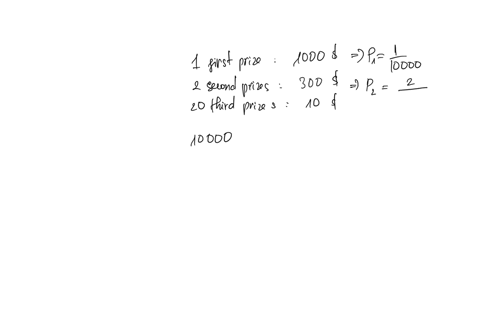 1 first prize : 1000 $ => P₁ = 1/10000
2 second prizes : 300 $ => P₂ = 2/
20 third prizes : 10 $
10000